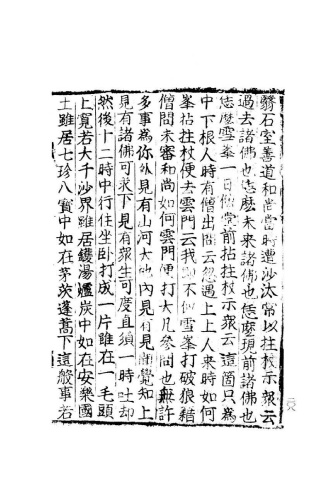 翳石室善道和尚當時遭沙汰常以拄杖示衆云
過去諸佛也恁麼未來諸佛也恁麼現前諸佛也
恁麼雪峯一日僧堂前拈拄杖示衆云這箇只為
中下根人時有僧出問云忽遇上上人來時如何
峯拈拄杖便去雲門云我即不似雪峯打破狼藉
僧問未審和尚如何雲門便打大凡參問也無許
多事為你外見有山河大地內見有見聞覺知上
見有諸佛可求下見有衆生可度直須一時吐却
然後十二時中行住坐臥打成一片雖在一毛頭
上寬若大千沙界雖居鑊湯爐炭中如在安樂國
土雖居七珍八寶中如在茅茨蓬蒿下這般事若